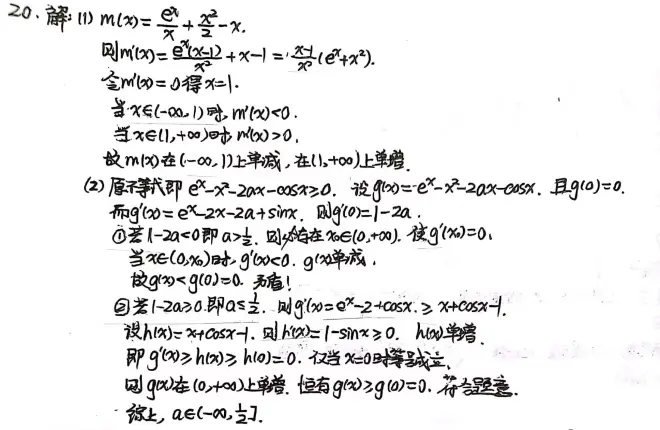 20. 解: (1) m(x) = e^x/x + x²/2 - x.
则m'(x) = e^x(x-1)/x² + x-1 = (x-1)/x² (e^x+x²).
令m'(x)=0得x=1.
当x∈(-∞,1)时, m'(x)<0.
当x∈(1,+∞)时, m'(x)>0.
故m(x)在(-∞,1)上单减, 在(1,+∞)上单增.
(2) 原不等式即 e^x-x²-2ax-cosx≥0. 设g(x)=e^x-x²-2ax-cosx. 且g(0)=0.
而g'(x)=e^x-2x-2a+sinx. 则g'(0)=1-2a.
①若1-2a<0即a>1/2. 则必存在x₀∈(0,+∞). 使g'(x₀)=0,
当x∈(0,x₀)时, g'(x)<0. g(x)单减.
故g(x)<g(0)=0. 矛盾!
②若1-2a≥0.即a≤1/2. 则g'(x)=e^x-2+cosx.≥x+cosx-1.
设h(x)=x+cosx-1. 则h'(x)=1-sinx≥0. h(x)单增.
即g'(x)≥h(x)≥h(0)=0. 仅当x=0时等号成立.
则g(x)在(0,+∞)上单增. 恒有g(x)≥g(0)=0. 符合题意.
综上, a∈(-∞,1/2].